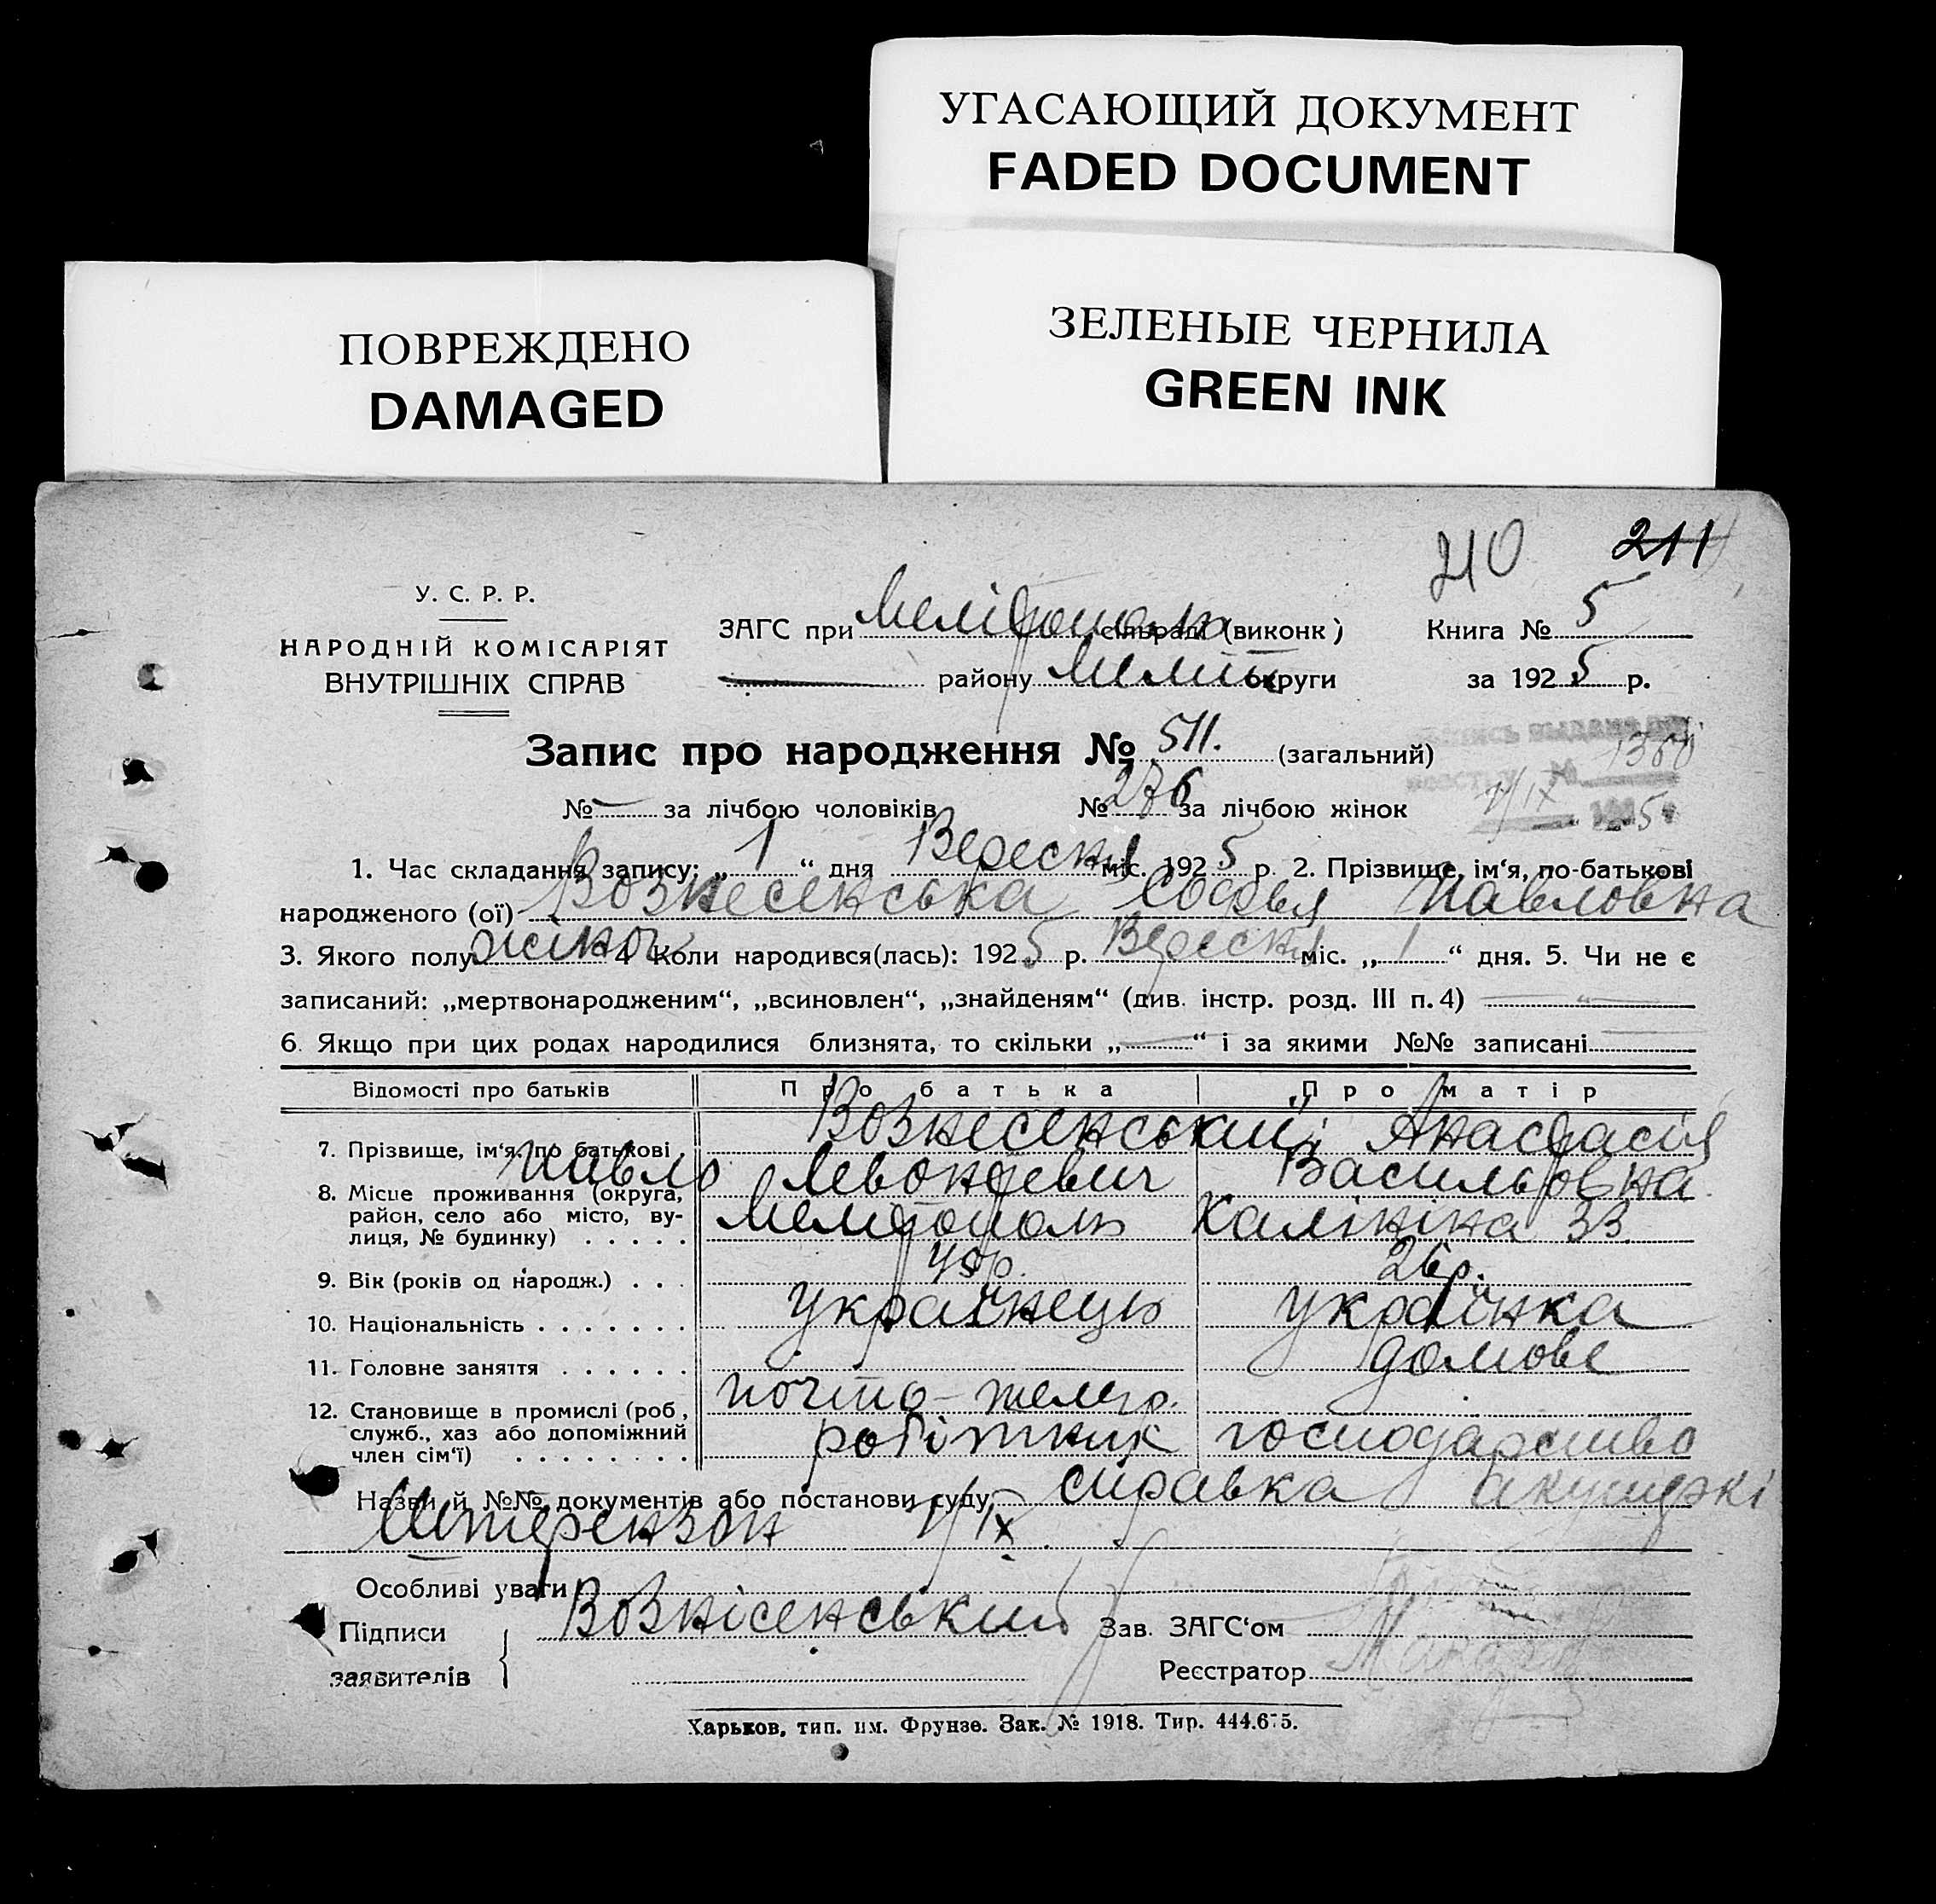 УГАСАЮЩИЙ ДОКУМЕНТ
FADED DOCUMENT
ЗЕЛЕНЫЕ ЧЕРНИЛА
GREEN INK
ПОВРЕЖДЕНО
DAMAGED
210 211
У. С. Р. Р.
НАРОДНІЙ КОМІСАРІЯТ
ВНУТРІШНІХ СПРАВ
ЗАГС при Мелітополь сільраді (виконк) Книга № 5
району Меліт округи за 1925 р.
Запис про народження № 511. (загальний)
1360
№ — за лічбою чоловіків № 276 за лічбою жінок
1. Час складання запису: „1“ дня Вересня міс. 1925 р. 2. Прізвище, ім‘я, по-батькові
народженого (ої) Вознесенська Софья Павловна
3. Якого полу жіноч 4. Коли народився(лась): 1925 р. Вересня міс. „1“ дня. 5. Чи не є
записаний: „мертвонародженим“, „всиновлен“, „знайденям“ (див. інстр. розд. III п. 4) — „ —
6. Якщо при цих родах народилися близнята, то скільки „—“ і за якими №№ записані —
Відомості про батьків Про батька Про матір
7. Прізвище, ім‘я, по батькові Вознесенський Анастасія
Павло Левонтевич Васильовна
8. Місце проживання (округа,
район, село або місто, ву-
лиця, № будинку) Мелітополь Калініна 33
9. Вік (років од народж.) 26р.
10. Національність українець українка
11. Головне заняття домове
почто-телегр.
12. Становище в промислі (роб.,
служб., хаз або допоміжний
член сім‘ї) робітник господарство
Назви й №№ документів або постанови суду справка акушерки
Штерензон 1/IX
Особливі уваги
Підписи Вознісенський Зав. ЗАГС‘ом
заявителів Реєстратор
Харьков, тип. им. Фрунзе. Зак. № 1918. Тир. 444.675.